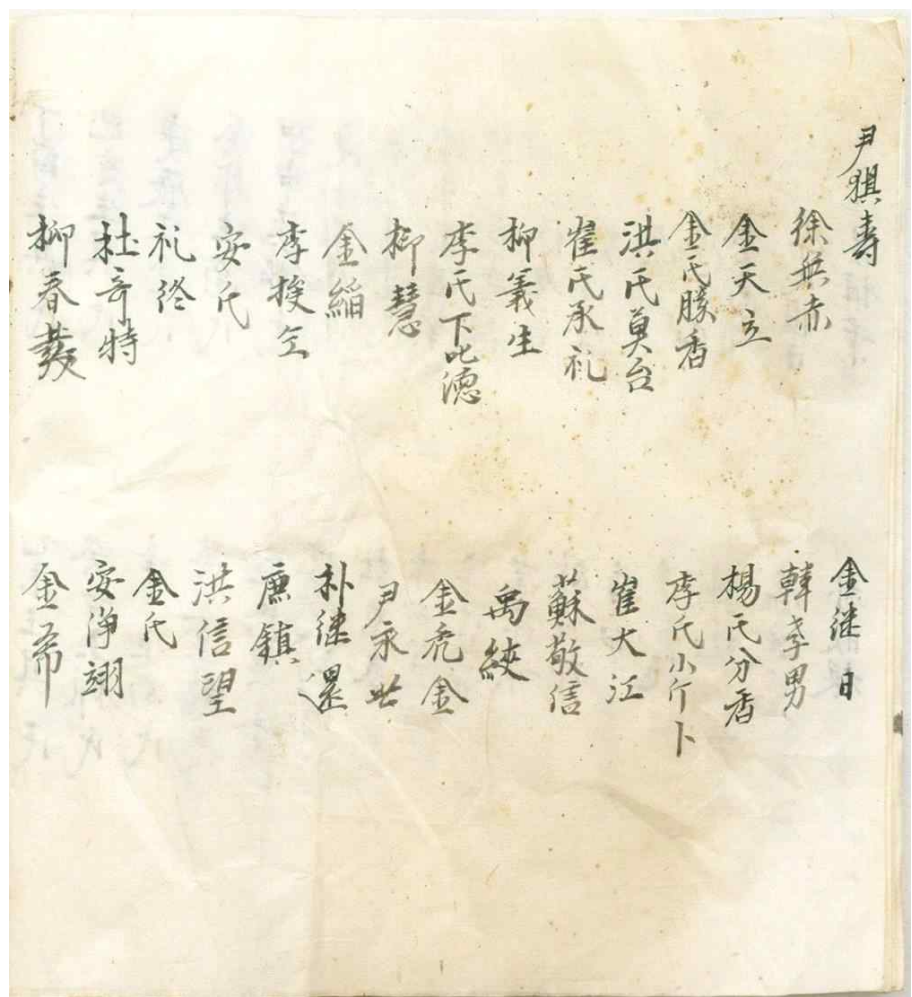 尹猉壽
徐無赤
金天立
金氏勝香
洪氏莫台
崔氏承礼
柳義生
李氏下叱德
柳慧
金緇
李挨仝
安氏
礼終
杜奇特
柳春發
金継日
韓孝男
楊氏分香
李氏小斤卜
崔大江
蘇敬信
禹綊
金禿金
尹永世
朴継還
廉鎮
洪信望
金氏
安淨翊
金希